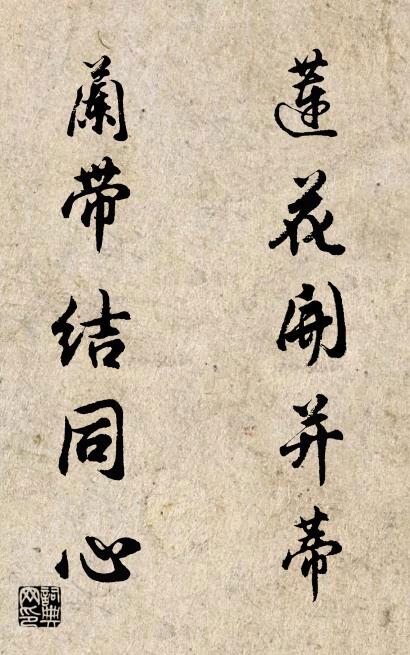 蓮花開并蒂
蘭帶结同心
詞典网印